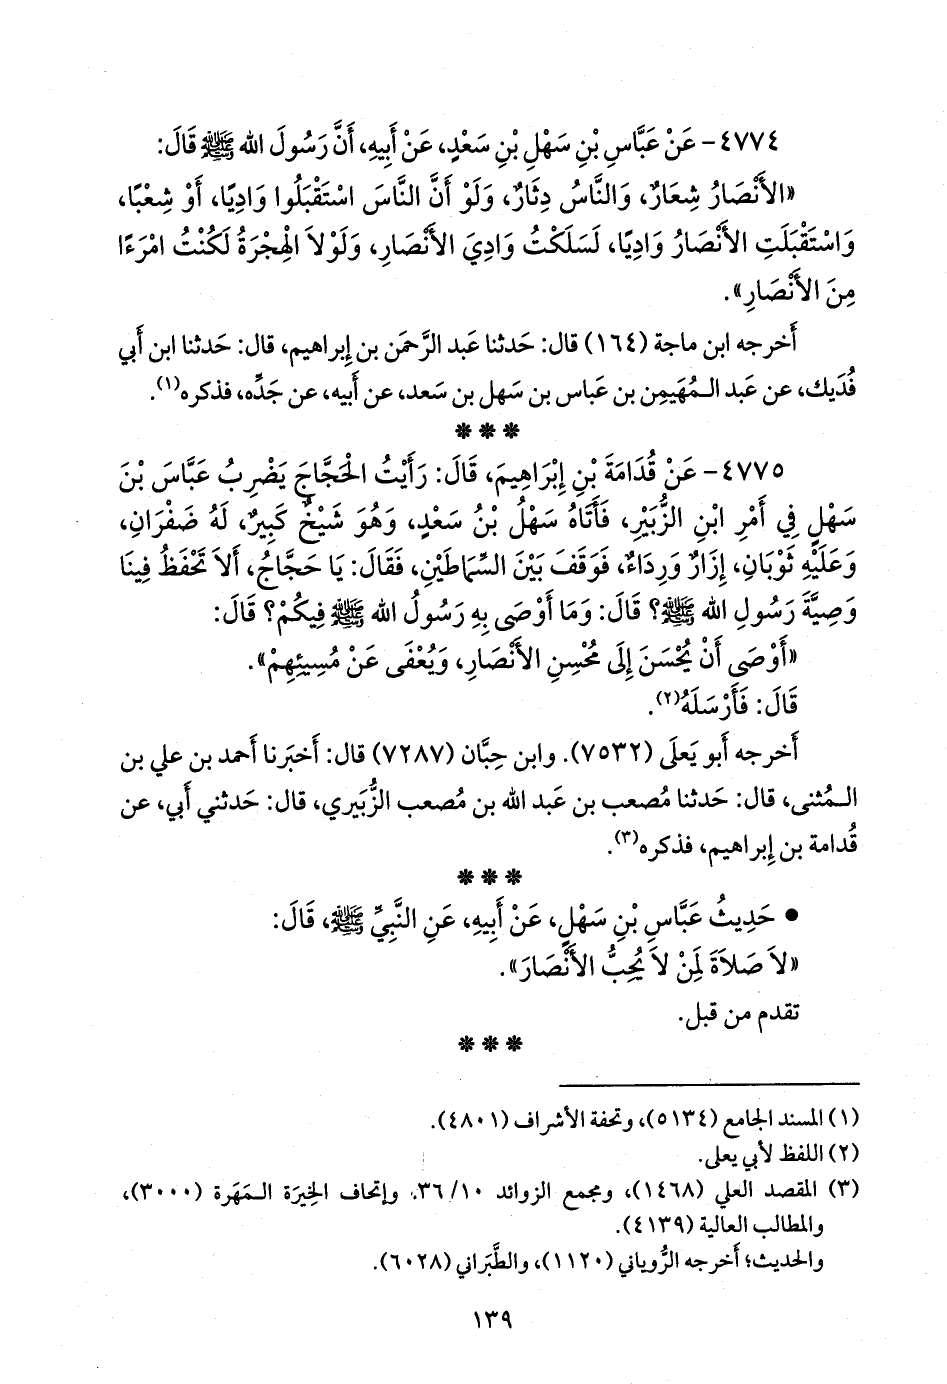 ٤٧٧٤- عَنْ عَبَّاسِ بْنِ سَهْلِ بْنِ سَعْدٍ، عَنْ أَبِيهِ، أَنَّ رَسُولَ الله ﷺ قَالَ:
«الأَنْصَارُ شِعَارٌ، وَالنَّاسُ دِثَارٌ، وَلَوْ أَنَّ النَّاسَ اسْتَقْبَلُوا وَادِيًا، أَوْ شِعْبًا،
وَاسْتَقْبَلَتِ الأَنْصَارُ وَادِيًا، لَسَلَكْتُ وَادِيَ الأَنْصَارِ، وَلَوْلاَ الْهِجْرَةُ لَكُنْتُ امْرَءًا
مِنَ الأَنْصَارِ».
أَخرجه ابن ماجة (١٦٤) قال: حَدثنا عَبد الرَّحمَن بن إِبراهيم، قال: حَدثنا ابن أَبي
فُدَيك، عن عَبد الـمُهَيمِن بن عَباس بن سَهل بن سَعد، عن أَبيه، عن جَدِّه، فذكره(١).
***
٤٧٧٥- عَنْ قُدَامَةَ بْنِ إِبْرَاهِيمَ، قَالَ: رَأَيْتُ الْحَجَّاجَ يَضْرِبُ عَبَّاسَ بْنَ
سَهْلٍ فِي أَمْرِ ابْنِ الزُّبَيْرِ، فَأَتَاهُ سَهْلُ بْنُ سَعْدٍ، وَهُوَ شَيْخٌ كَبِيرٌ، لَهُ ضَفْرَانِ،
وَعَلَيْهِ ثَوْبَانِ، إِزَارٌ وَرِدَاءٌ، فَوَقَفَ بَيْنَ السِّمَاطَيْنِ، فَقَالَ: يَا حَجَّاجُ، أَلاَ تَحْفَظُ فِينَا
وَصِيَّةَ رَسُولِ الله ﷺ؟ قَالَ: وَمَا أَوْصَى بِهِ رَسُولُ الله ﷺ فِيكُمْ؟ قَالَ:
«أَوْصَى أَنْ يُحْسَنَ إِلَى مُحْسِنِ الأَنْصَارِ، وَيُعْفَى عَنْ مُسِيئِهِمْ».
قَالَ: فَأَرْسَلَهُ(٢).
أَخرجه أَبو يَعلَى (٧٥٣٢). وابن حِبَّان (٧٢٨٧) قال: أَخبَرنا أَحمد بن علي بن
الـمُثنى، قال: حَدثنا مُصعب بن عَبد الله بن مُصعب الزُّبَيري، قال: حَدثني أَبي، عن
قُدامة بن إِبراهيم، فذكره(٣).
***
• حَدِيثُ عَبَّاسِ بْنِ سَهْلٍ، عَنْ أَبِيهِ، عَنِ النَّبِيِّ ﷺ، قَالَ:
«لاَ صَلاَةَ لِمَنْ لاَ يُحِبُّ الأَنْصَارَ».
تقدم من قبل.
***
(١) المسند الجامع (٥١٣٤)، وتحفة الأشراف (٤٨٠١).
(٢) اللفظ لأبي يعلى.
(٣) المقصد العلي (١٤٦٨)، ومجمع الزوائد ١٠/٣٦، وإتحاف الخِيرَة الـمَهَرة (٣٠٠٠)،
والمطالب العالية (٤١٣٩).
والحديث؛ أَخرجه الرُّوياني (١١٢٠)، والطَّبَراني (٦٠٢٨).
١٣٩